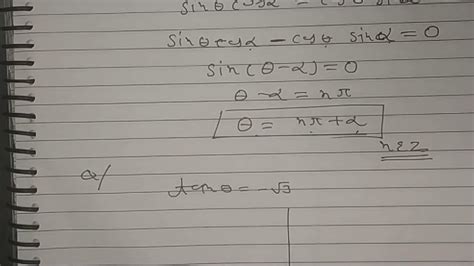 sinθ cosα - cosθ sinα
sinθ cosα - cosθ sinα = 0
sin(θ-α) = 0
θ - α = nπ
θ = nπ + α
n ε Z
Q/
tanθ = -√3